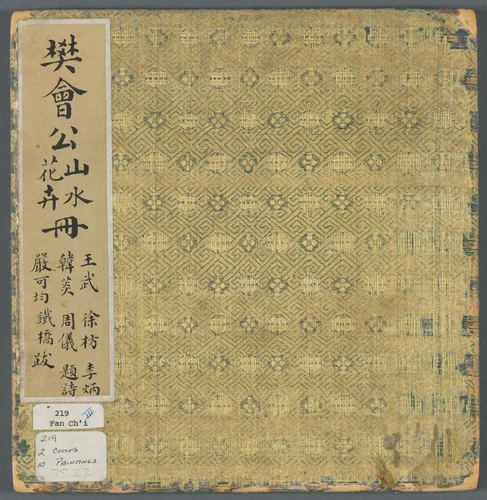 樊會公山水花卉冊
王武 徐枋 李炳
韓菼 周儀 題詩
嚴可均 鐵橋 跋
219
Fan Ch'i
219
2 COVERS
10 PAINTINGS
7522